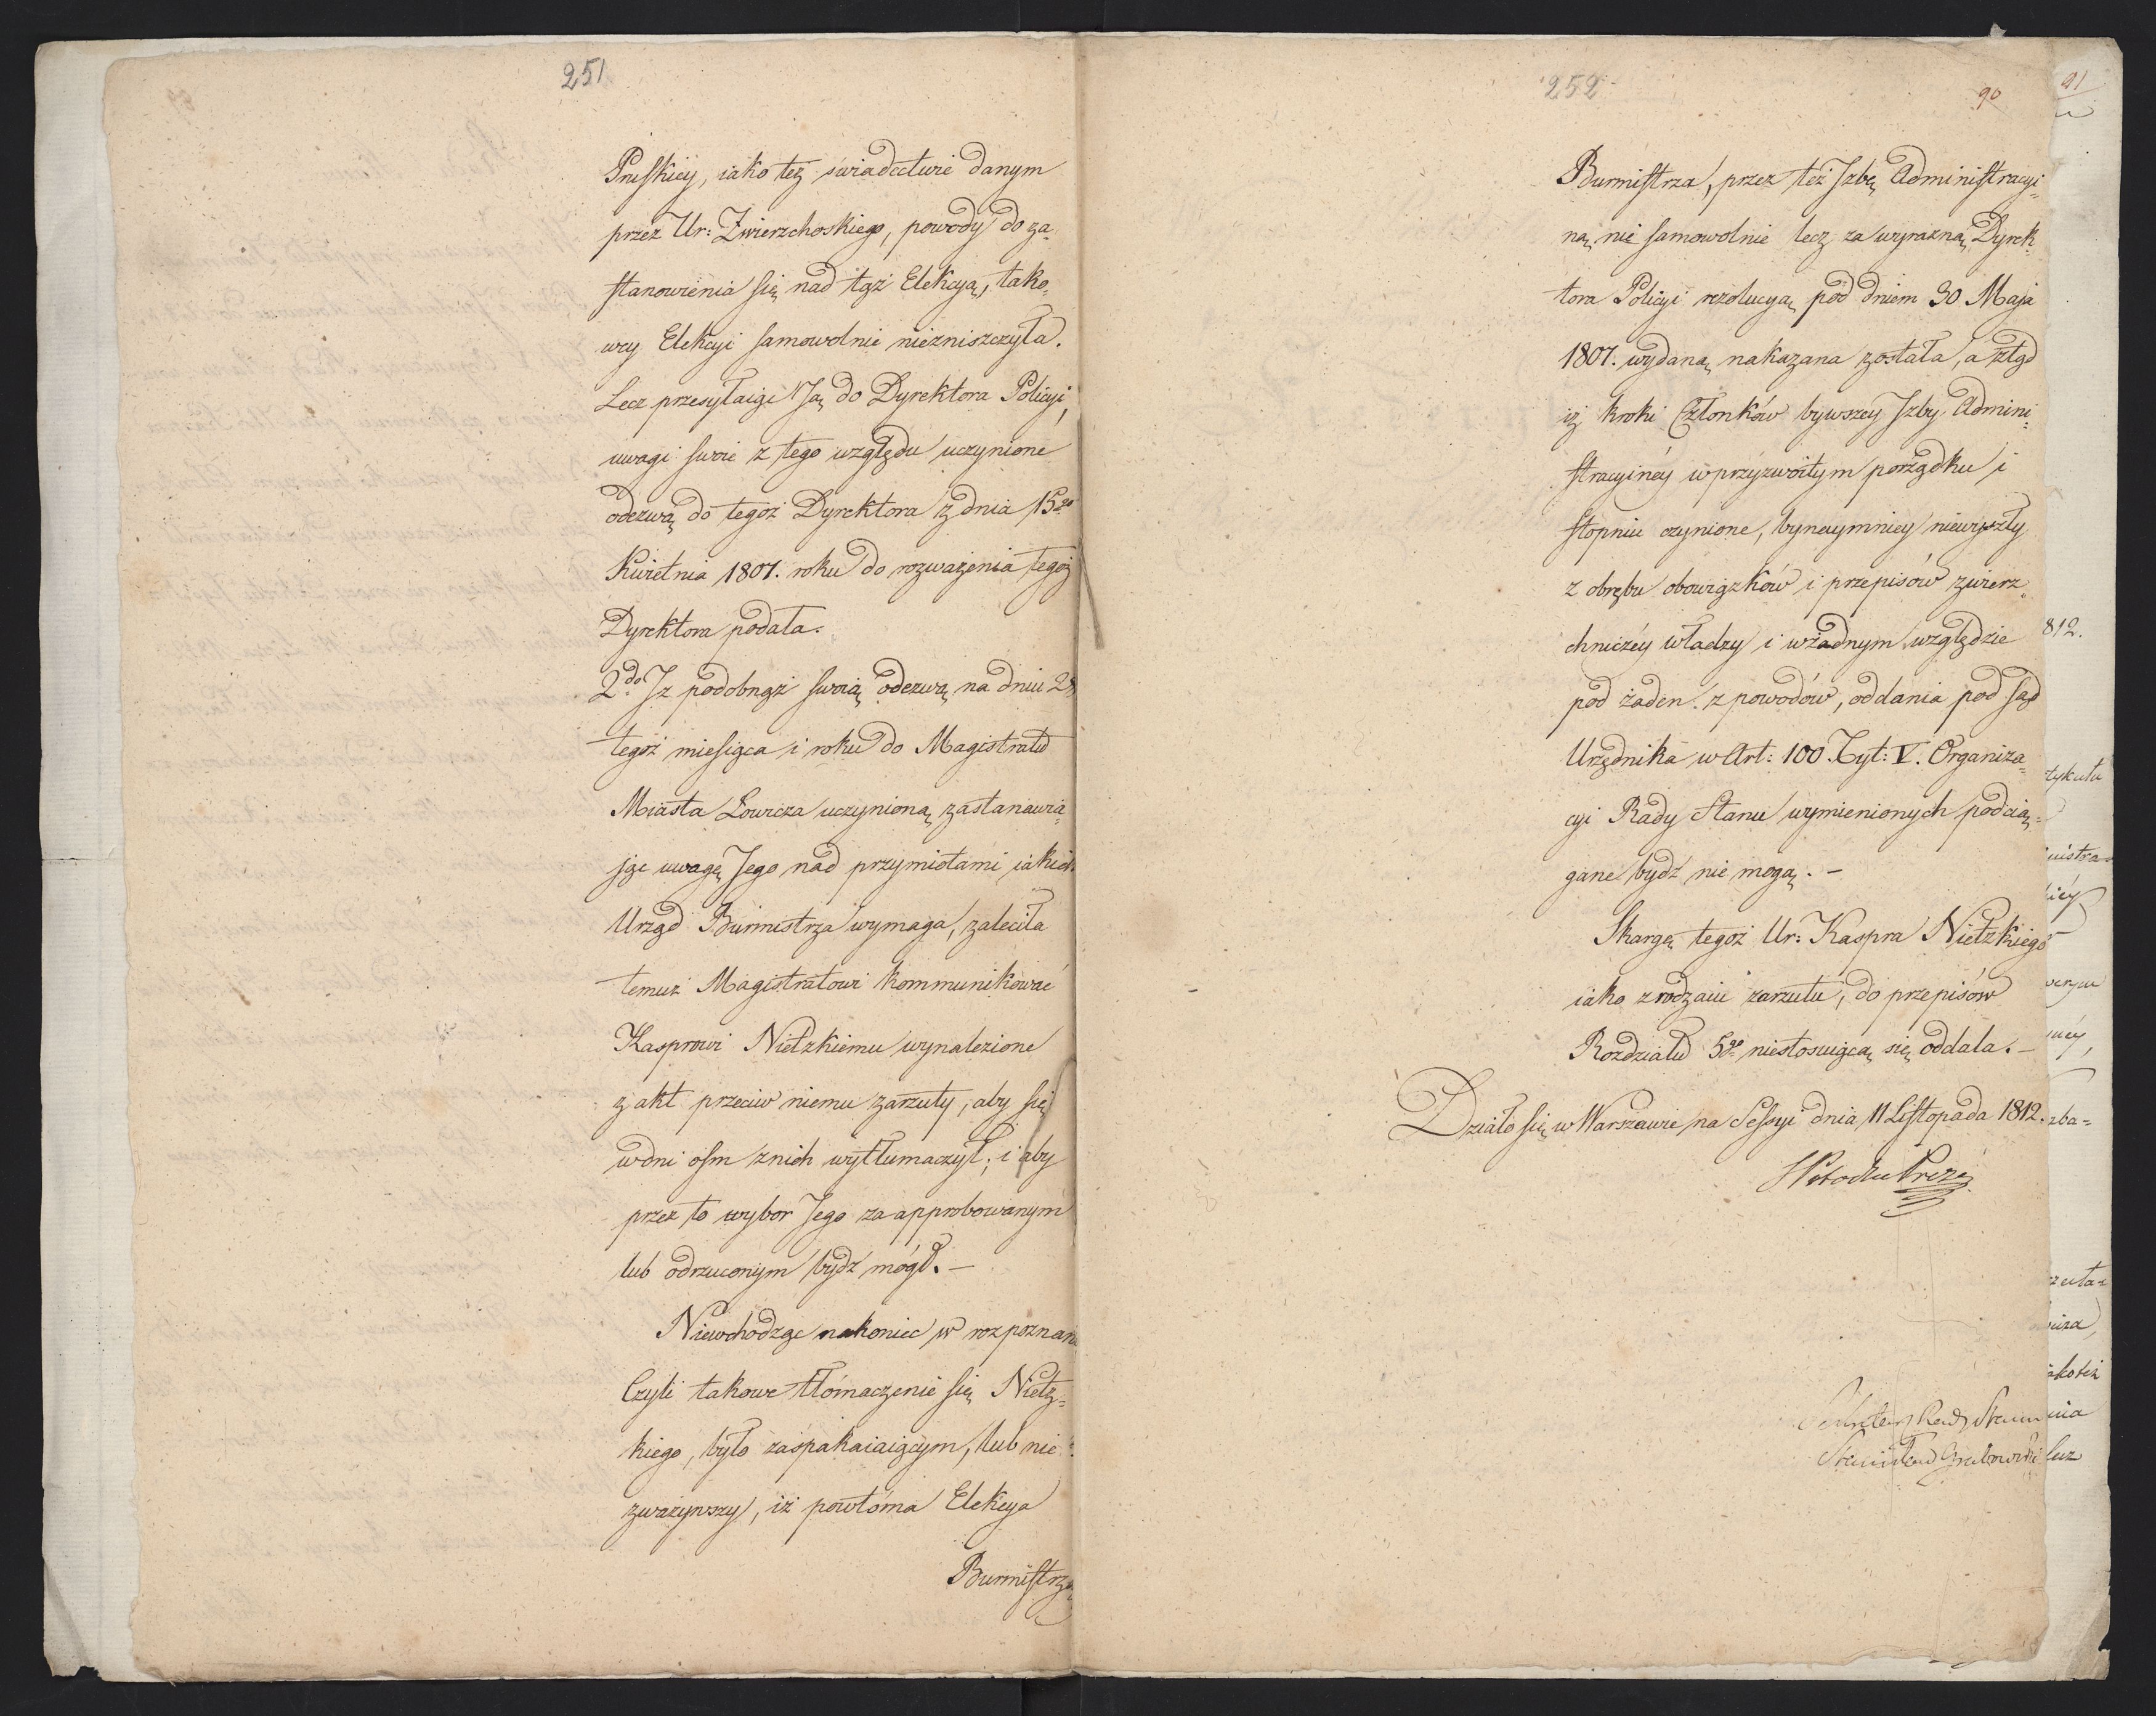 251
Pruskiey, iako też świadectwie danym
przez Ur: Zwierzchoskiego, powody do za-
stanowienia się nad tąż Elekcyą, tako-
wey Elekcyi samowolnie niezniszczyła.
Lecz przesyłaiąc Ją do Dyrektora Policyi,
uwagi swoie z tego względu uczynione
odezwą do tegoż Dyrektora z dnia 15go
Kwietnia 1807. roku do rozważenia tegoż
Dyrektora podała.
2do Iz podobnąż swoią odezwą na dniu 28
tegoż miesiąca i roku do Magistratu
Miasta Łowicza uczynioną, zastanawia-
jąc uwagę Jego nad przymiotami iakich
Urząd Burmistrza wymaga, zaleciła
temuż Magistratowi kommunikować
Kasprowi Nietzkiemu wynalezione
z akt przeciw niemu zarzuty, aby się
w dni ośm znich wytłumaczył; i aby
przez to wybor Jego za approbowanym
lub odrzuconym bydź mógł. —
Niewchodząc nakoniec w rozpoznanie
Czyli takowe tłómaczenie się Nietz-
kiego, było zaspakaiaiącym, lub nie
zważywszy, iż powtórna Elekcya
Burmistrza
252
90
Burmistrza, przez też Izbę Administracyi-
ną, nie samowolnie lecz za wyraźną Dyrek-
tora Policyi rezolucyą pod dniem 30 Maja
1807. wydaną nakazana została, a ztąd
iż kroki Członków bywszey Izby Admini-
stracyinéy w przyzwoitym porządku i
stopniu czynione, bynaymniey niewyszły
z obrębu obowiązków i przepisów zwierz-
chniczéy władzy i w żadnym względzie
pod żaden z powodów, oddania pod Sąd
Urzędnika w Art: 100. Tyt: V. Organiza-
cyi Rady Stanu wymienionych podcią-
gane bydź nie mogą. —
Skargę tegoż Ur: Kaspra Nietzkiego
iako z rodzaiu zarzutu, do przepisów
Rozdziału 5go niestosuiącą się oddala. —
Działo się w Warszawie na Sessyi dnia 11 Listopada 1812.
Sekretarz Rady Stanu
Stanisław Grabowski
91
812.